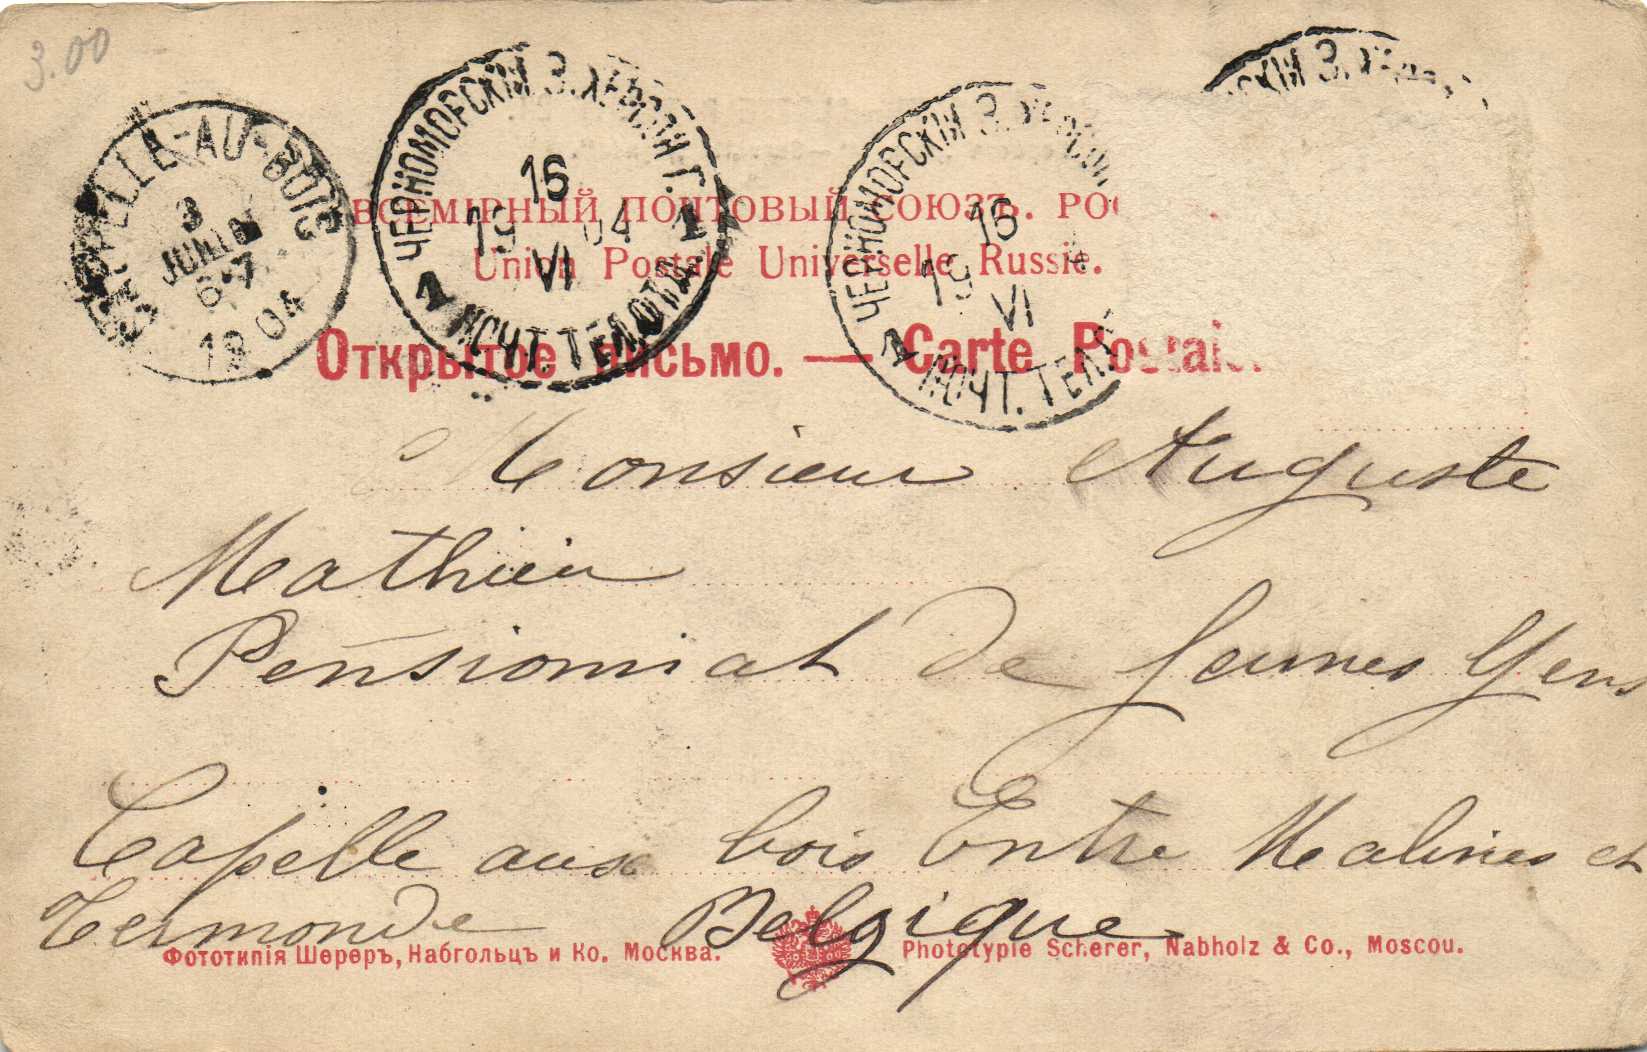 3.00
CAPELLE-AU-BOIS
3
6-7
1904
ЧЕРНОМОРСКІЙ З. ХЕРСОН Г.
16
VI
1904
1 ПОЧТ. ТЕЛ. ОТД. 1
ЧЕРНОМОРСКІЙ З. ХЕРСОН
16
19
VI
1 ПОЧТ. ТЕЛ
СКІЙ З. ХЕРСОН
ВСЕМІРНЫЙ ПОЧТОВЫЙ СОЮЗЪ. РОС
Union Postale Universelle Russie.
Открытое письмо. — Carte Postale.
Monsieur Auguste
Mathieu
Pensionnat de Jeunes Gens
Capelle aux bois Entre Malines et
Termonde Belgique
Фототипія Шереръ, Набгольцъ и Ко. Москва.
Phototypie Scherer, Nabholz & Co., Moscou.